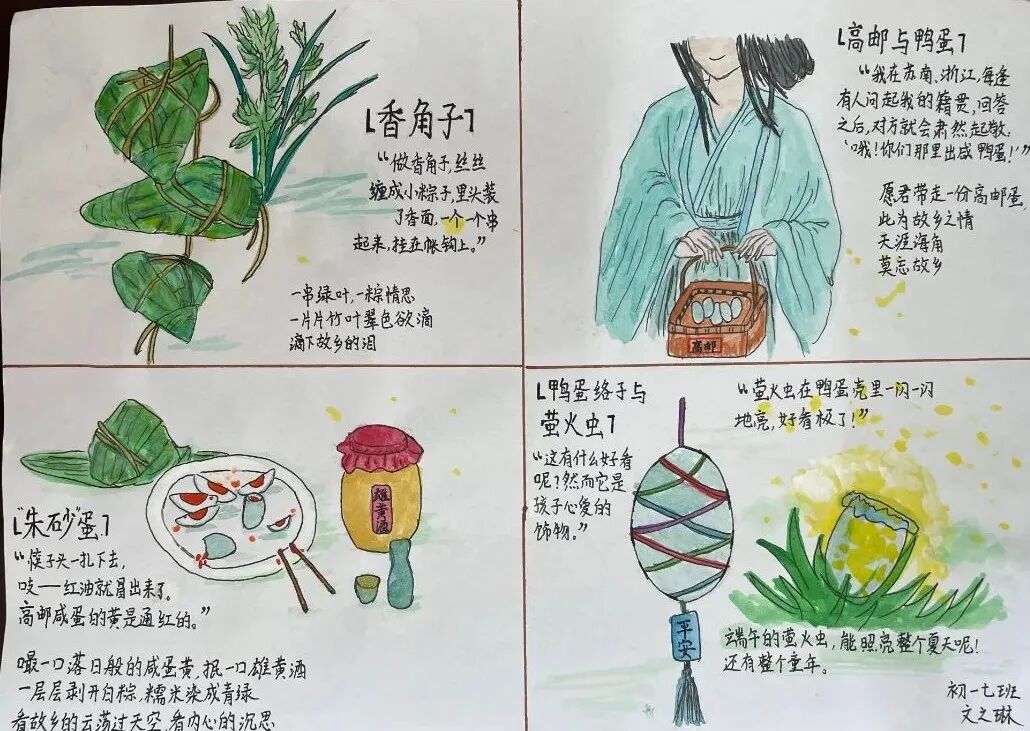 「香角子」
“做香角子,丝丝
缠成小粽子,里头装
了香面,一个一个串
起来,挂在帐钩上。”
一串绿叶,一粽情思
一片片竹叶翠色欲滴
滴下故乡的泪
「高邮与鸭蛋」
“我在苏南、浙江,每逢
有人问起我的籍贯,回答
之后,对方就会肃然起敬:
‘哦!你们那里出咸鸭蛋!’”
愿君带走一份高邮蛋,
此为故乡之情
天涯海角
莫忘故乡
高邮
「“朱砂”蛋」
“筷子头一扎下去,
吱——红油就冒出来了。
高邮咸蛋的黄是通红的。”
雄黄酒
嘬一口落日般的咸蛋黄,抿一口雄黄酒
一层层剥开白粽,糯米染成青绿
看故乡的云荡过天空,看内心的沉思
「鸭蛋络子与
萤火虫」
“这有什么好看
呢?然而它是
孩子心爱的
饰物。”
平安
“萤火虫在鸭蛋壳里一闪一闪
地亮,好看极了!”
端午的萤火虫,能照亮整个夏天呢!
还有整个童年。
初一七班
文之琳